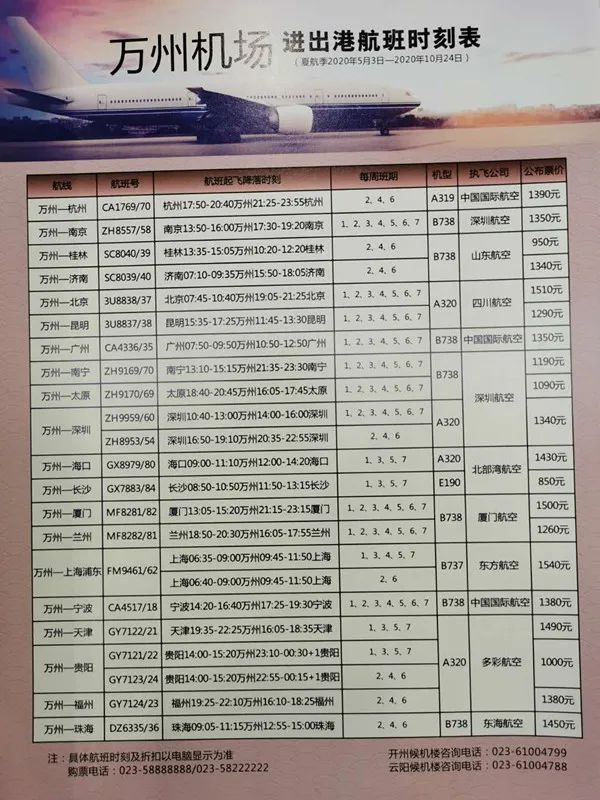 万州机场 进出港航班时刻表
（夏航季2020年5月3日—2020年10月24日）
航线 航班号 航班起飞降落时刻 每周班期 机型 执飞公司 公布票价
万州—杭州 CA1769/70 杭州17:50-20:40万州21:25-23:55杭州 2、4、6 A319 中国国际航空 1390元
万州—南京 ZH8557/58 南京13:50-16:00万州17:30-19:20南京 1、2、3、4、5、6、7 B738 深圳航空 1350元
万州—桂林 SC8040/39 桂林13:35-15:05万州10:20-12:20桂林 2、4、6 B738 山东航空 950元
万州—济南 SC8039/40 济南07:10-09:35万州15:50-18:05济南 2、4、6 1340元
万州—北京 3U8838/37 北京07:45-10:40万州19:05-21:25北京 1、2、3、4、5、6、7 A320 四川航空 1510元
万州—昆明 3U8837/38 昆明15:35-17:25万州11:45-13:30昆明 1、2、3、4、5、6、7 1290元
万州—广州 CA4336/35 广州07:50-09:50万州10:50-12:50广州 1、2、3、4、5、6、7 B738 中国国际航空 1350元
万州—南宁 ZH9169/70 南宁13:10-15:15万州21:35-23:30南宁 1、2、3、4、5、6、7 B738 深圳航空 1190元
万州—太原 ZH9170/69 太原18:40-20:45万州16:05-17:45太原 1、2、3、4、5、6、7 1090元
万州—深圳 ZH9959/60 深圳10:40-13:00万州14:00-16:00深圳 1、2、3、4、5、6、7 A320 1340元
ZH8953/54 深圳16:50-19:10万州20:35-22:55深圳 2、4、6
万州—海口 GX8979/80 海口09:00-11:10万州12:00-14:20海口 1、3、5、7 A320 北部湾航空 1430元
万州—长沙 GX7883/84 长沙08:50-10:50万州11:50-13:15长沙 1、3、5、7 E190 850元
万州—厦门 MF8281/82 厦门13:05-15:20万州21:15-23:15厦门 1、2、3、4、5、6、7 B738 厦门航空 1500元
万州—兰州 MF8282/81 兰州18:50-20:30万州16:05-17:55兰州 1、2、3、4、5、6、7 1260元
万州—上海浦东 FM9461/62 上海06:35-09:00万州09:45-11:50上海 1、3、4、5、7 B737 东方航空 1540元
上海06:40-09:00万州09:45-11:50上海 2、6
万州—宁波 CA4517/18 宁波14:20-16:40万州17:25-19:30宁波 1、2、3、4、5、6、7 B738 中国国际航空 1380元
万州—天津 GY7122/21 天津19:35-22:25万州16:05-18:35天津 1、3、5、7 A320 多彩航空 1490元
万州—贵阳 GY7121/22 贵阳14:00-15:20万州23:10-00:30+1贵阳 1、3、5、7 1000元
GY7123/24 贵阳14:00-15:20万州22:55-00:15+1贵阳 2、4、6
万州—福州 GY7124/23 福州19:25-22:10万州16:10-18:25福州 2、4、6 1380元
万州—珠海 DZ6335/36 珠海09:05-11:15万州12:55-15:00珠海 2、4、6 B738 东海航空 1450元
注：具体航班时刻及折扣以电脑显示为准 开州候机楼咨询电话：023-61004799
购票电话：023-58888888/023-58222222 云阳候机楼咨询电话：023-61004788